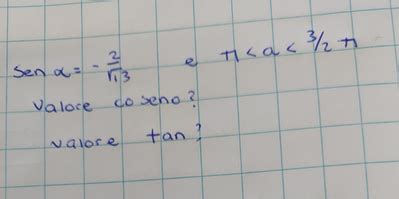 sen α = - 2/√13 e π < α < 3/2 π
valore coseno?
valore tan?